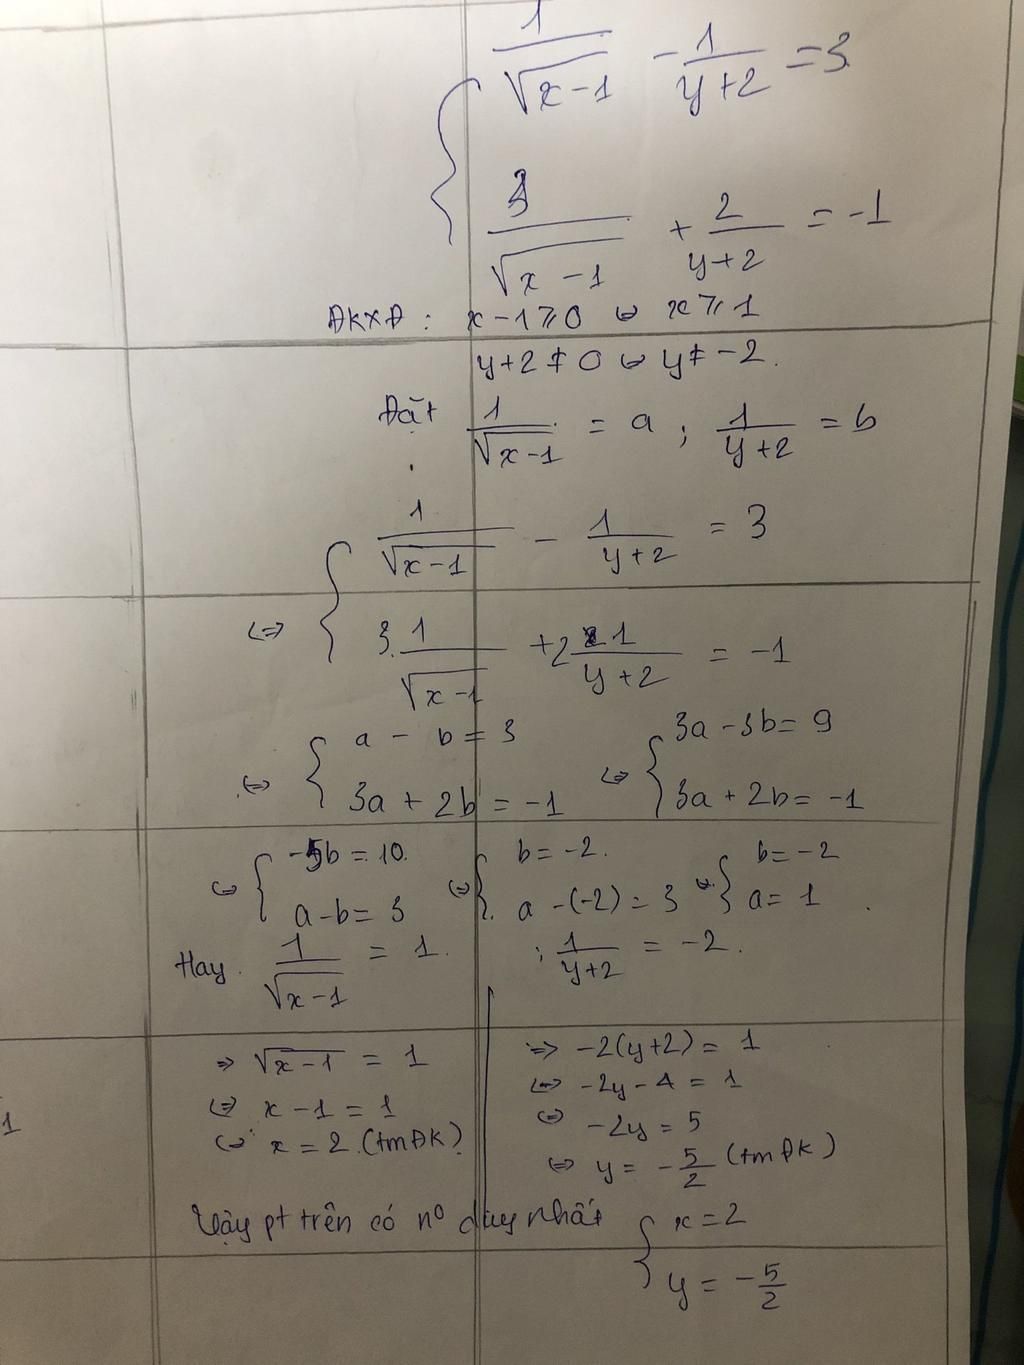 { 1/√(x-1) - 1/(y+2) = 3
3/√(x-1) + 2/(y+2) = -1
ĐKXĐ: x-1 ≥ 0 ⇔ x ≥ 1
y+2 ≠ 0 ⇔ y ≠ -2.
Đặt 1/√(x-1) = a ; 1/(y+2) = b
⇔ { 1/√(x-1) - 1/(y+2) = 3
3. 1/√(x-1) + 2 1/(y+2) = -1
⇔ { a - b = 3
3a + 2b = -1
⇔ { 3a - 3b = 9
3a + 2b = -1
⇔ { -5b = 10.
a-b = 3
⇔ { b = -2.
a -(-2) = 3
⇔ { b = -2
a = 1
Hay. 1/√(x-1) = 1. ; 1/(y+2) = -2.
⇒ √(x-1) = 1
⇔ x-1 = 1
⇔ x = 2 (tmĐK)
⇒ -2(y+2) = 1
⇔ -2y-4 = 1
⇔ -2y = 5
⇔ y = -5/2 (tmĐK)
Vậy pt trên có nº duy nhất { x = 2
y = -5/2
1